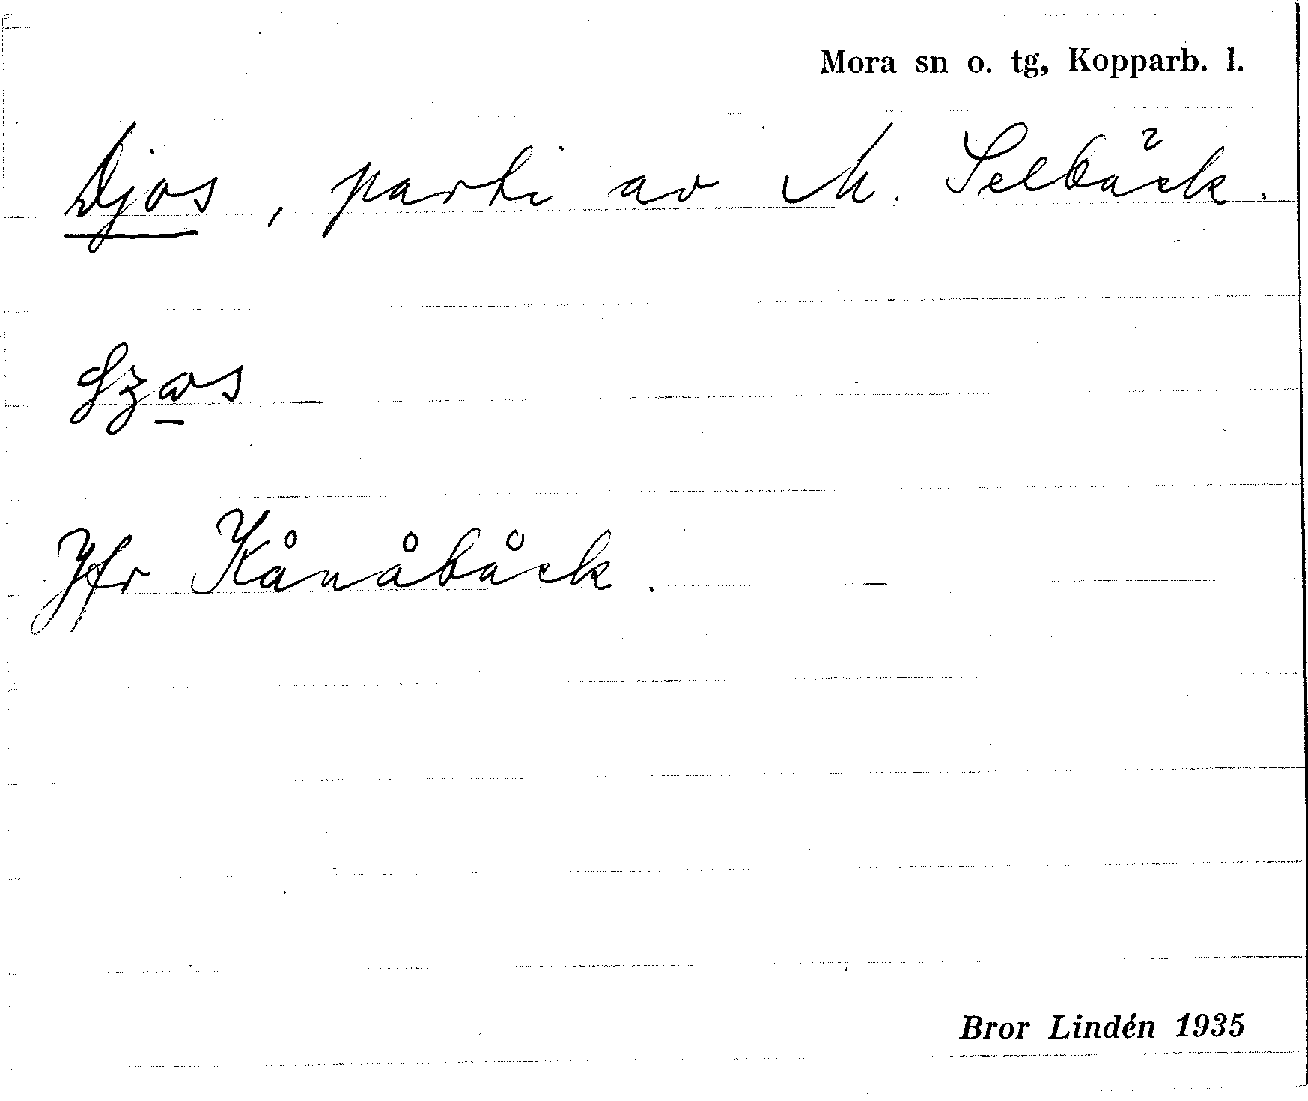 Mora sn o. tg, Kopparb. l.
Djos, parti av M. Selbäck.
Jfr Kånåbåck.
Bror Lindén 1935